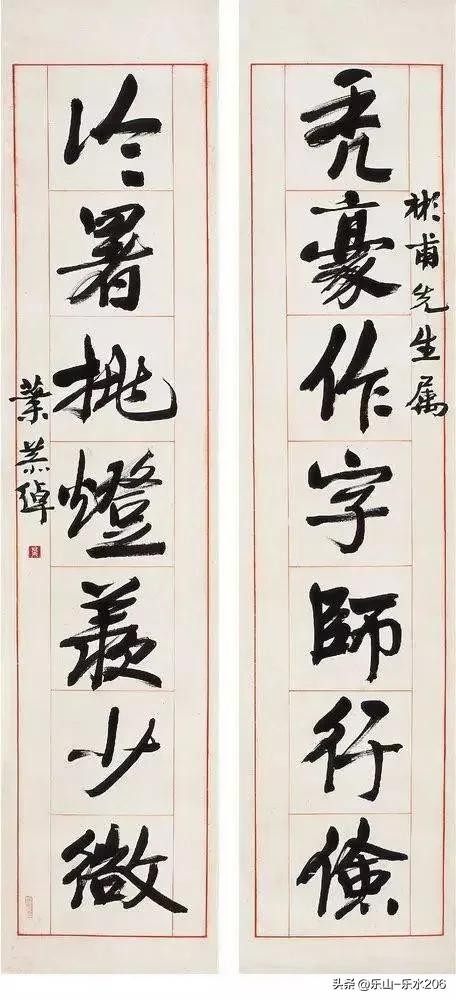 彬甫先生属
秃豪作字師行儉
冷署挑燈羨少微
葉恭綽
头条@乐山-乐水206